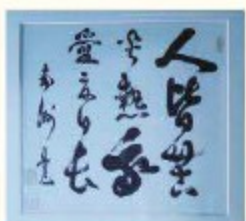 人皆苦
炎熱我
愛夏日長